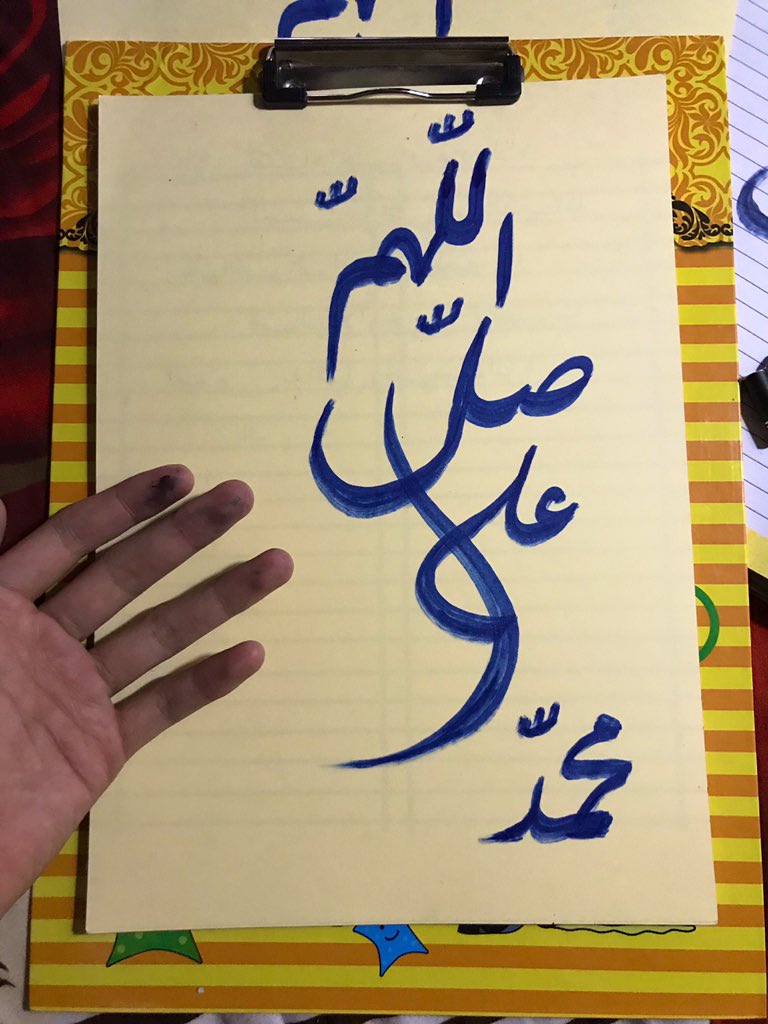 اللّهمّ
صلّ
على
محمّد